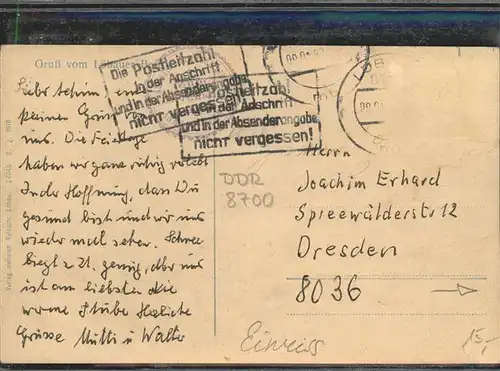 Gruß vom Löbauer Be
Die Postleitzahl
in der Anschrift
und in der Absenderangabe
nicht vergessen!
Postleitzahl
in der Anschrift
und in der Absenderangabe
nicht vergessen!
kleinen Gruß
uns. Die Feiertage
haben wir ganz ruhig verlebt
In der Hoffnung, dass Du
gesund bist und wir uns
wieder mal sehen. Schnee
liegt z. Zt. genug, aber uns
ist am liebsten die
warme Stube Herzliche
Grüsse Mutti u. Walter
DDR
8700
Herrn
Joachim Erhard
Spreewälderstr 12
Dresden
8036
Einreiss
15,-